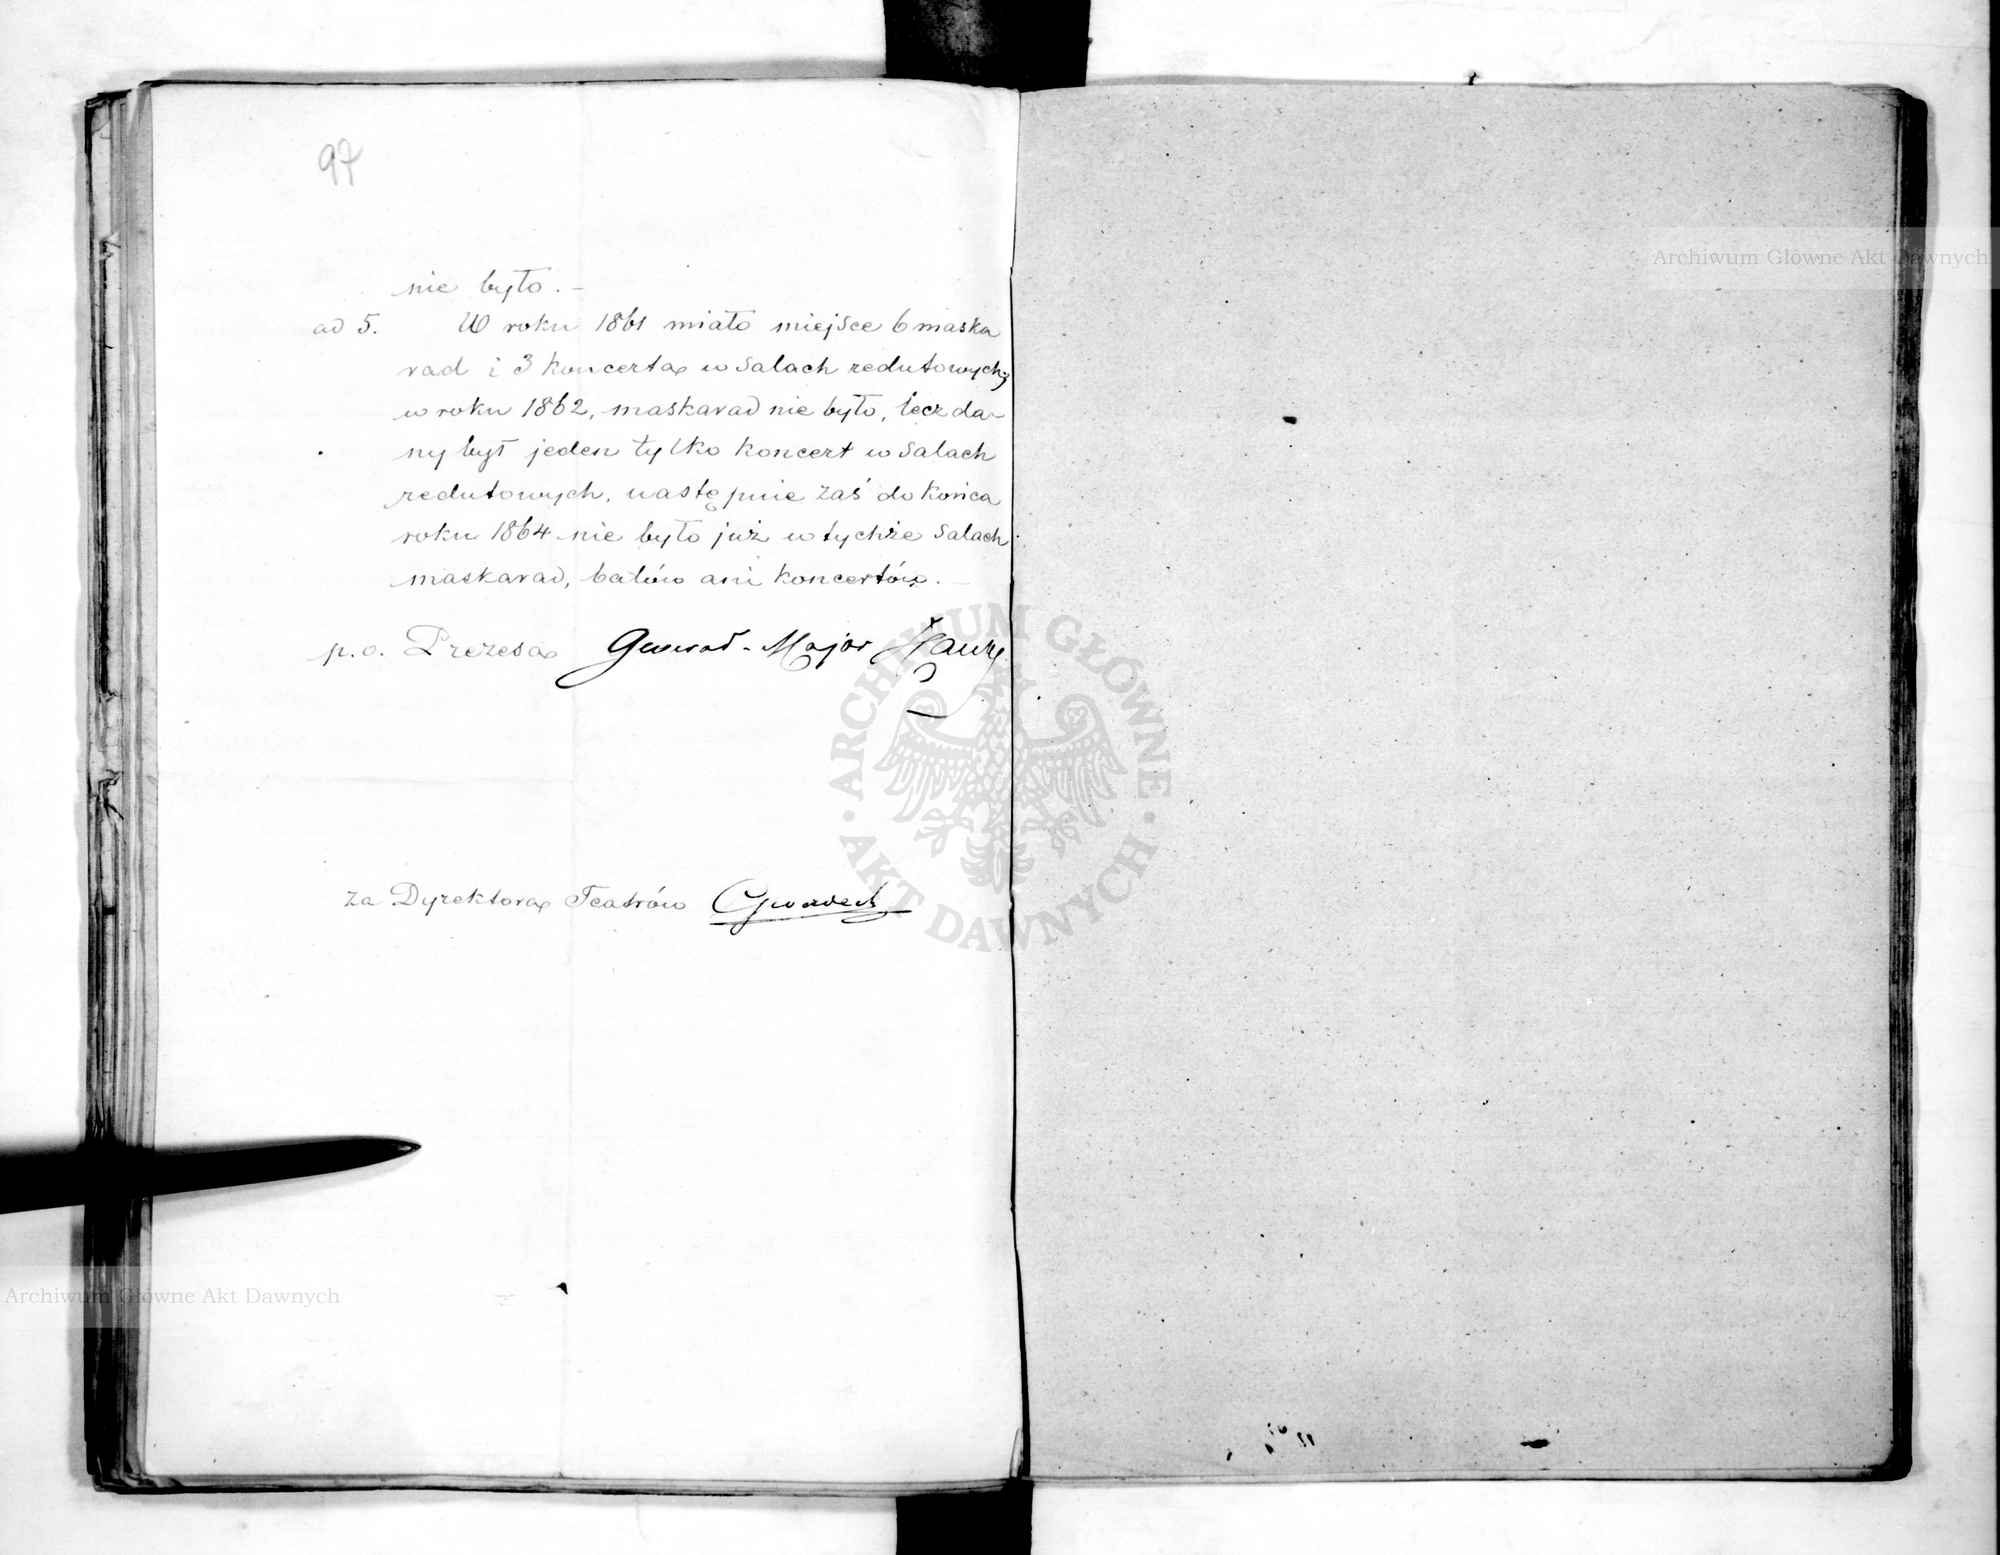 97
nie było. —
ad 5. W roku 1861 miało miejsce 6 maska
rad i 3 koncerta w Salach redutowych;
w roku 1862, maskarad nie było, lecz da-
ny był jeden tylko koncert w Salach
redutowych, następnie zaś do końca
roku 1864 nie było już w tychże Salach
maskarad, balów ani koncertów. —
p. o. Prezesa Generał-Major Hauke
za Dyrektora Teatrów
ARCHIWUM GŁÓWNE
AKT DAWNYCH
Archiwum Główne Akt Dawnych
Archiwum Główne Akt Dawnych